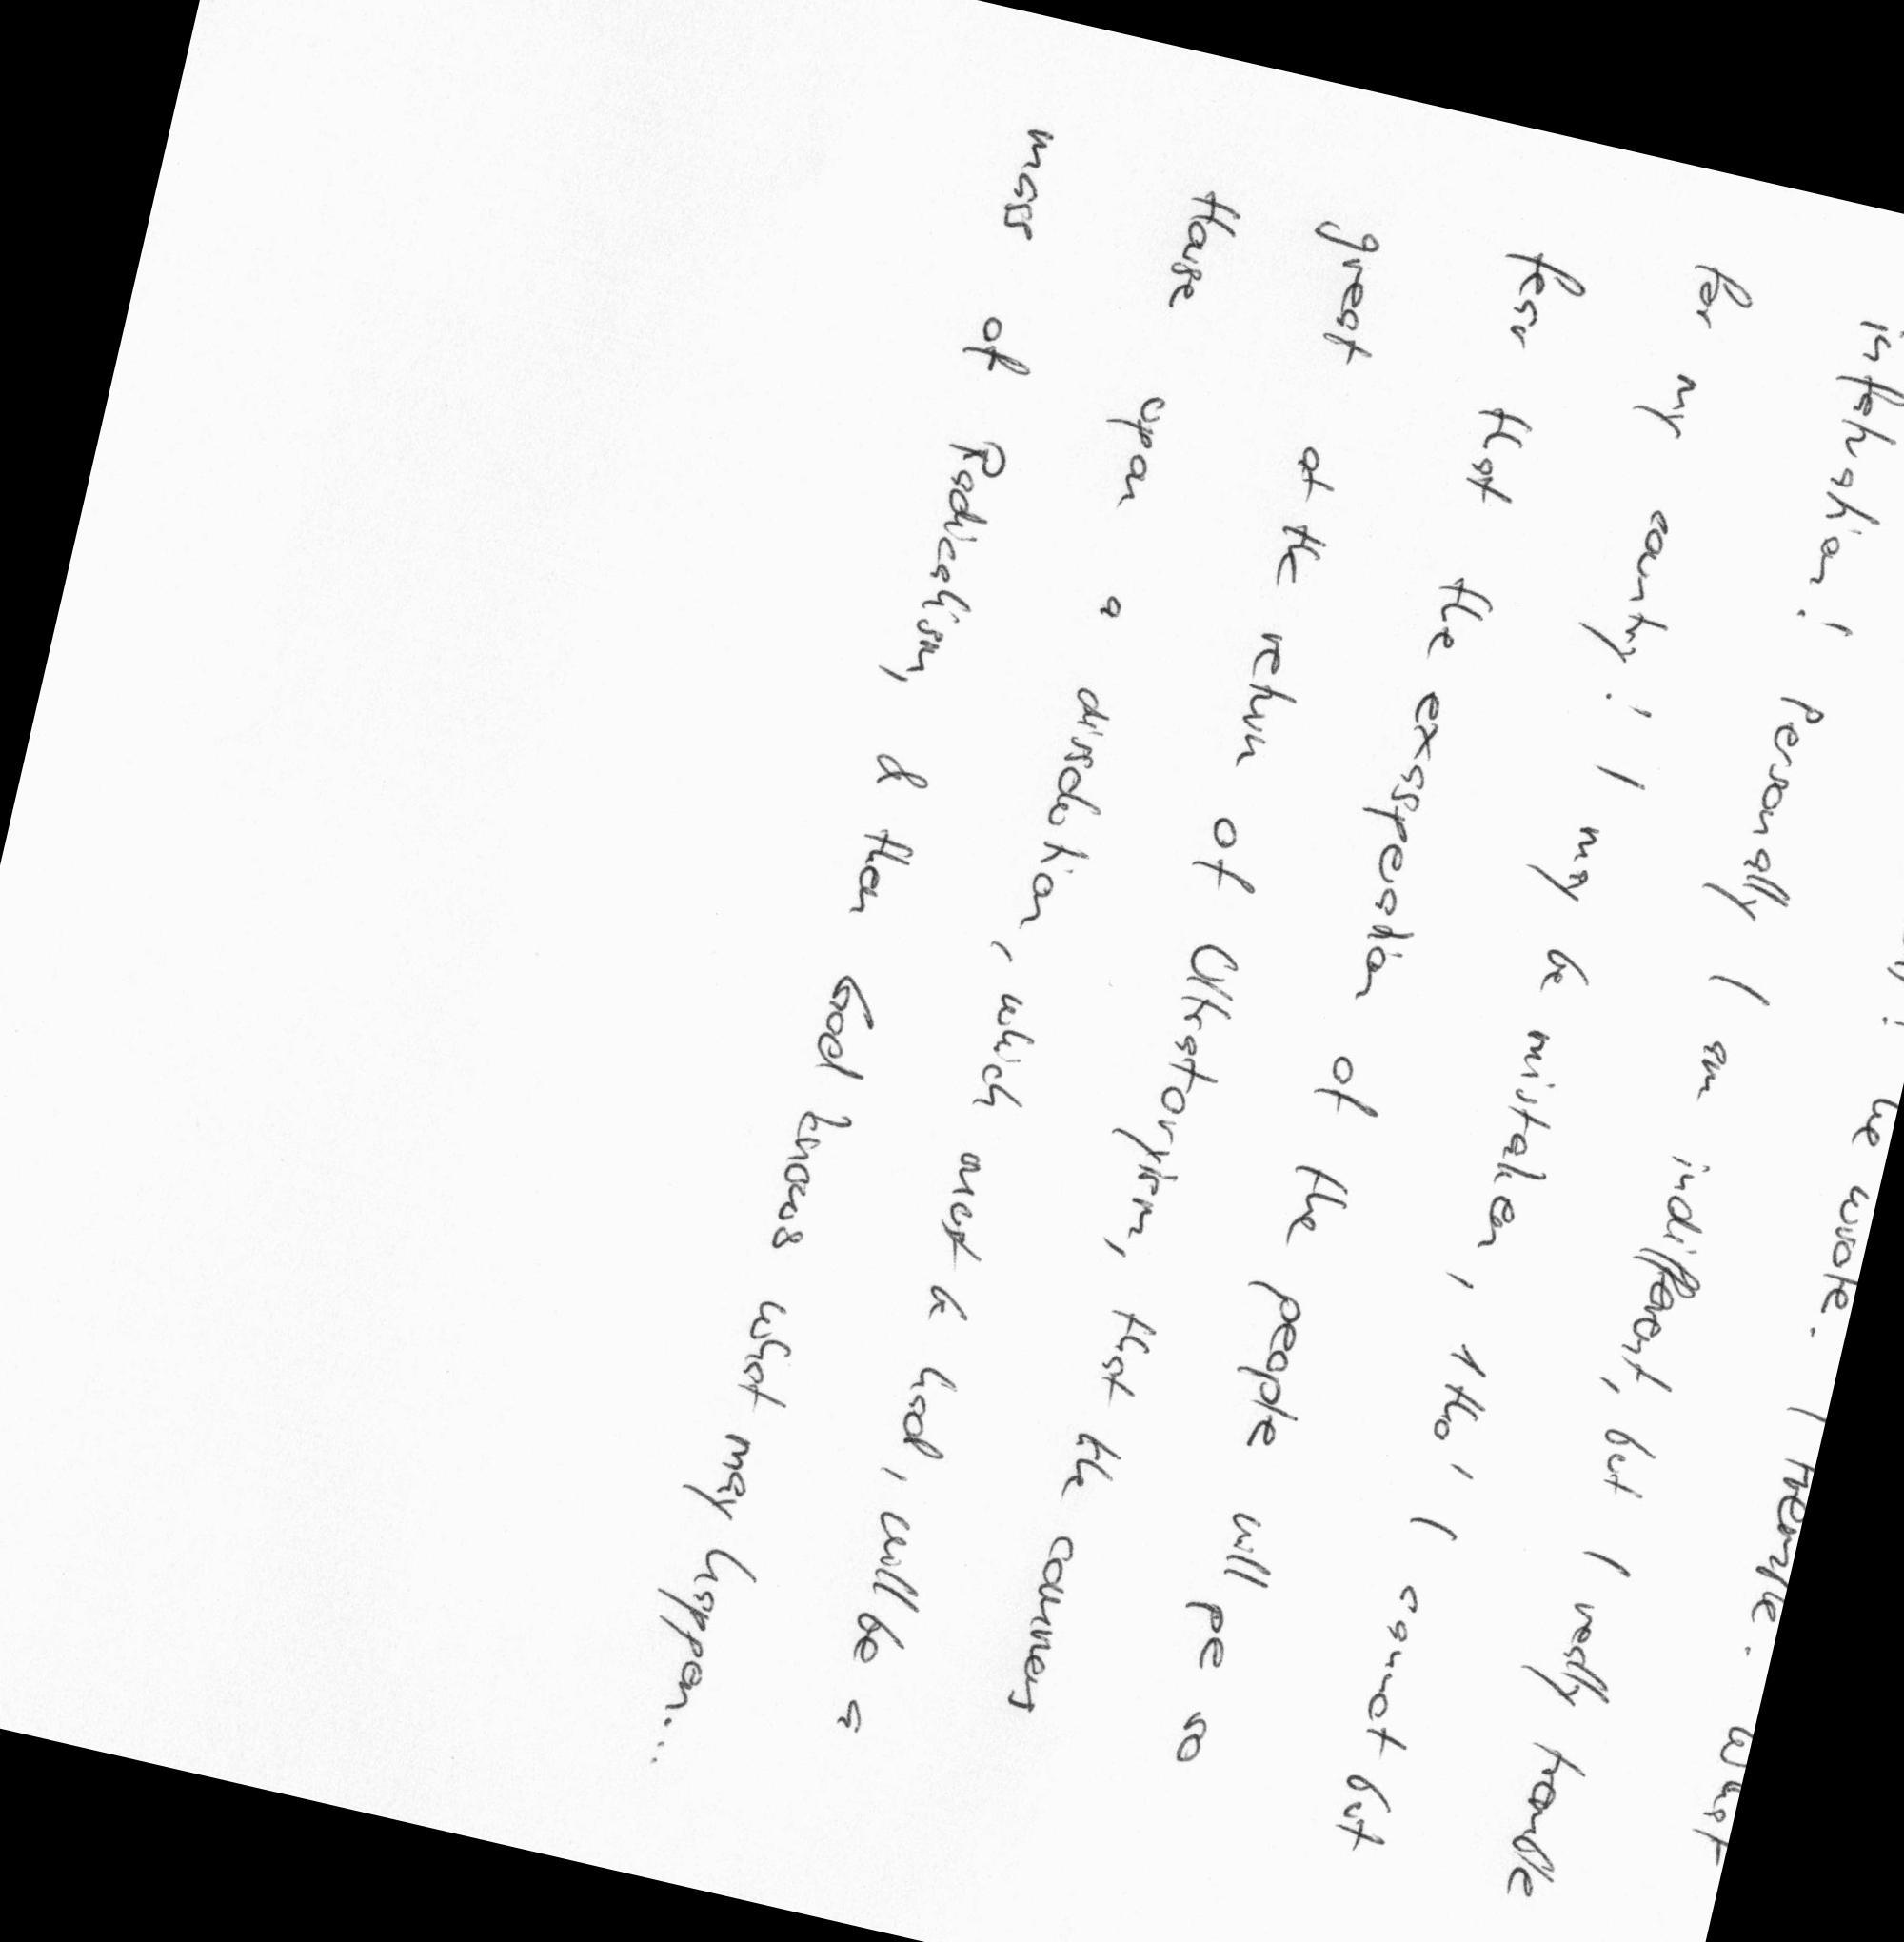 he wrote. I tremble. What
infatuation! Personally I am indifferent, but I really tremble
for my country! I may be mistaken, 'tho' I cannot but
fear that the exasperation of the people will pe so
great at the return of Ultratoryism, that the commers
House upon a dissolution, which must be had, will be a
mass of Radicalism, & then God knows what may happen...